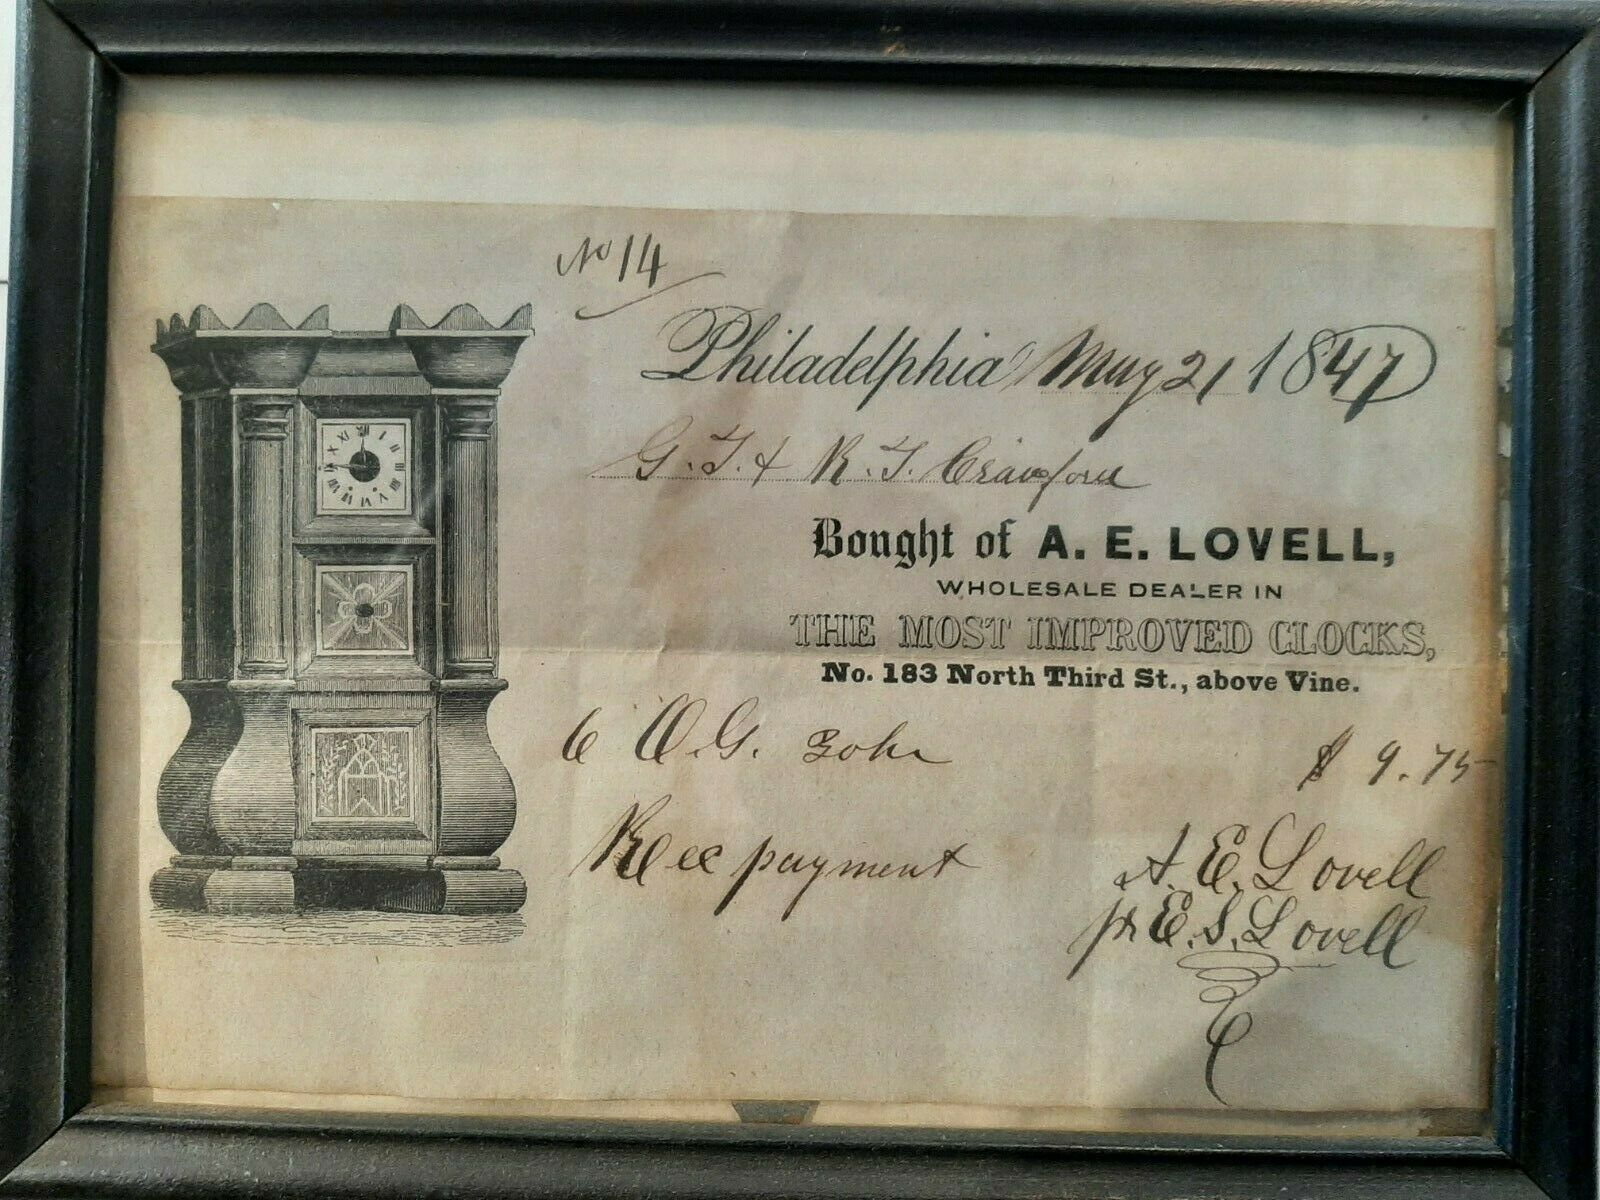 No 14
Philadelphia May 21 1847
G. T. & R. T. Crawford
Bought of A. E. LOVELL,
WHOLESALE DEALER IN
THE MOST IMPROVED CLOCKS,
No. 183 North Third St., above Vine.
6 O.G. 30hr $ 9.75
Rec payment A. E. Lovell
pr E. S. Lovell